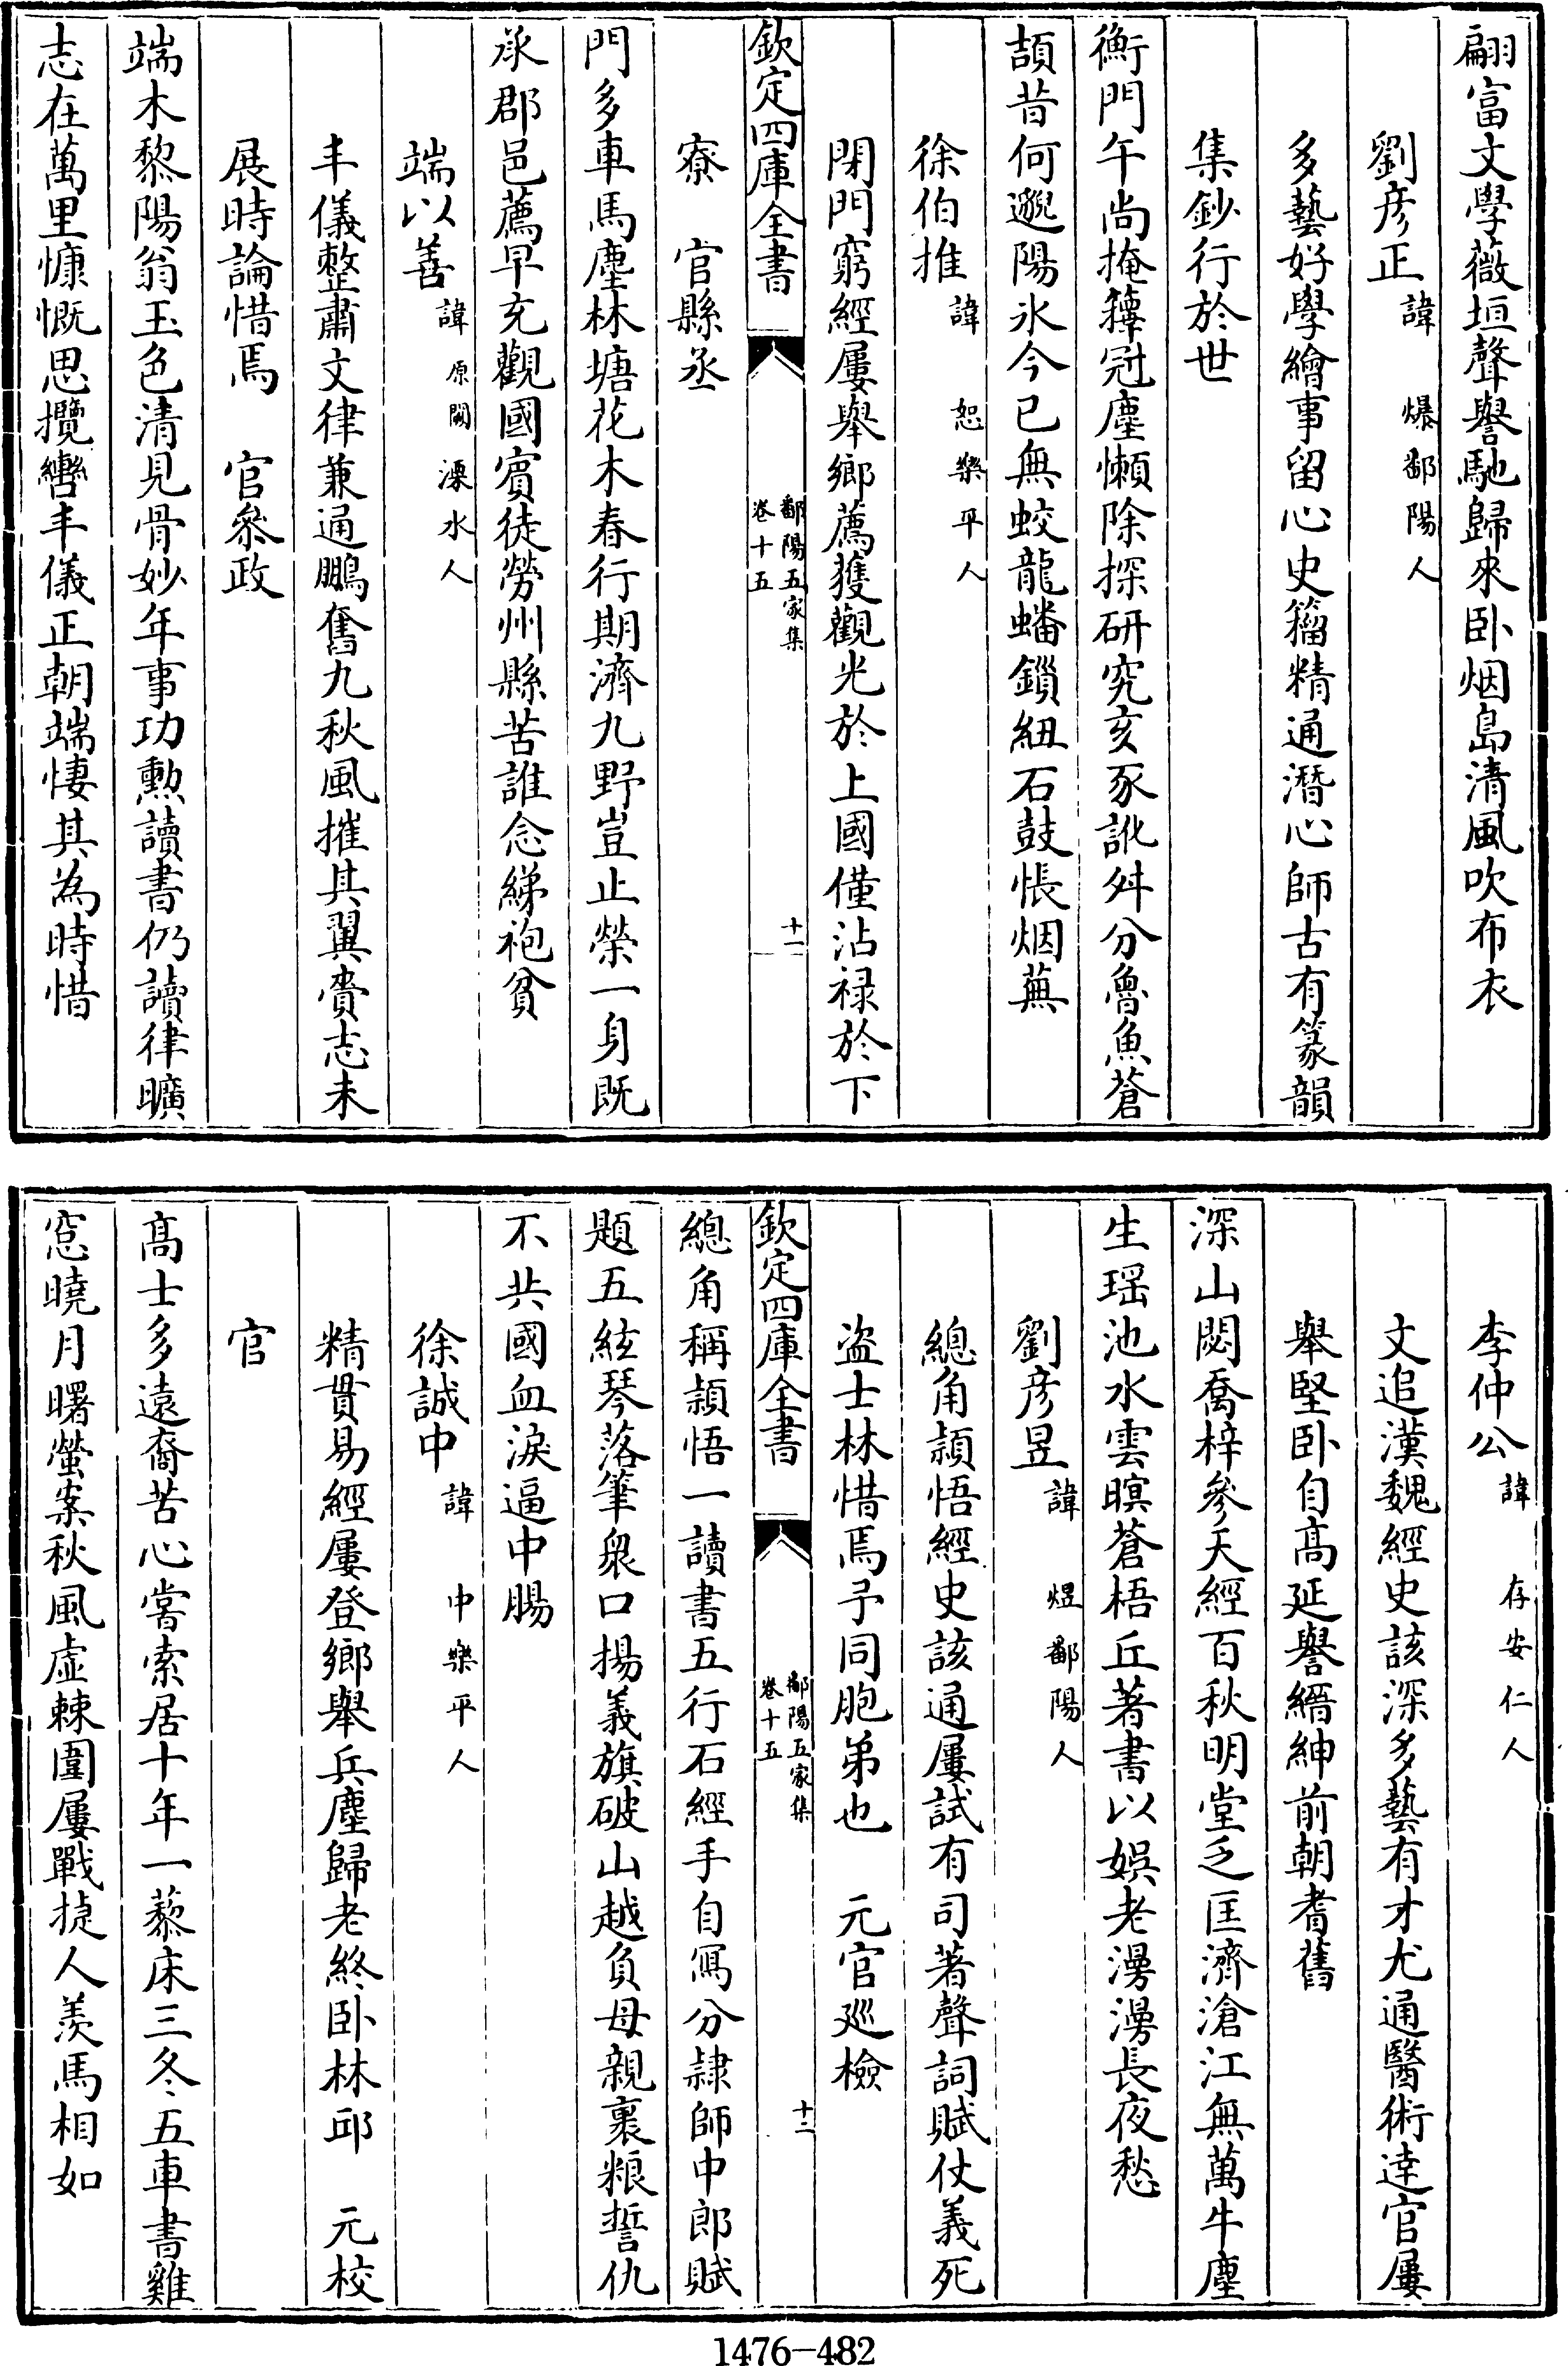 翩富文學薇垣聲譽馳歸來卧烟島清風吹布衣
劉彦正諱 爆鄱陽人
多藝好學繪事留心史籀精通潛心師古有篆韻
集鈔行於世
衡門午尚掩籜冠塵懶除探研究亥豕訛舛分魯魚蒼
頡昔何邈陽氷今已無蛟龍蟠鎻紐石鼓悵烟蕪
徐伯推諱 恕樂平人
閉門窮經屢舉鄉薦獲觀光於上國僅沾禄於下
欽定四庫全書
鄱陽五家集
卷十五
十一
寮 官縣丞
門多車馬塵林塘花木春行期濟九野豈止榮一身既
承郡邑薦早充觀國賓徒勞州縣苦誰念綈袍貧
端以善諱原闕溧水人
丰儀整肅文律兼通鵬奮九秋風摧其翼賷志未
展時論惜焉 官叅政
端木黎陽翁玉色清見骨妙年事功勲讀書仍讀律曠
志在萬里慷慨思攬轡丰儀正朝端悽其為時惜
李仲公諱 存安仁人
文追漢魏經史該深多藝有才尤通醫術達官屢
舉堅卧自髙延譽縉紳前朝耆舊
深山閟喬梓參天經百秋明堂乏匡濟滄江無萬牛塵
生瑶池水雲暝蒼梧丘著書以娛老漫漫長夜愁
劉彦昱諱 煜鄱陽人
總角頴悟經史該通屢試有司著聲詞賦仗義死
盗士林惜焉予同胞弟也 元官廵檢
欽定四庫全書
鄱陽五家集
卷十五
十二
總角稱頴悟一讀書五行石經手自冩分隷師中郎賦
題五絃琴落筆衆口揚義旗破山越負母親裹粮誓仇
不共國血淚逼中腸
徐誠中諱 中樂平人
精貫易經屢登鄉舉兵塵歸老終卧林邱 元校
官
髙士多遠裔苦心嘗索居十年一藜床三冬五車書雞
窓曉月曙螢案秋風虚棘圍屢戰捷人羡馬相如
1476-482